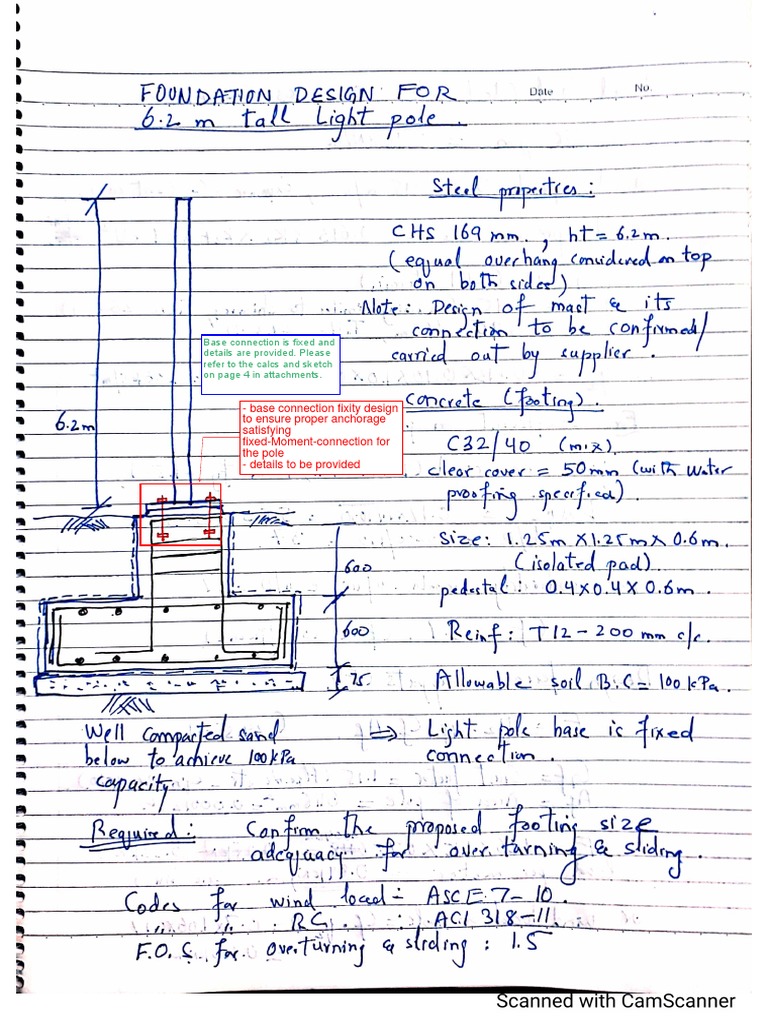 FOUNDATION DESIGN FOR
Date
No.
6.2 m tall Light pole.
Steel properties:
CHS 169 mm, ht = 6.2m.
(equal overhang considered on top
on both sides)
Note: Design of mast & its
connection to be confirmed/
carried out by supplier.
Base connection is fixed and
details are provided. Please
refer to the calcs and sketch
on page 4 in attachments.
- base connection fixity design
to ensure proper anchorage
satisfying
fixed-Moment-connection for
the pole
- details to be provided
6.2m
Concrete (footing).
C32/40 (mix)
clear cover = 50mm (with water
proofing specified).
Size: 1.25m x 1.25m x 0.6m.
(isolated pad).
pedestal: 0.4x0.4x0.6m.
Reinf: T12-200 mm c/c.
Allowable soil B.C = 100 kPa.
600
600
75
Well compacted sand
below to achieve 100kPa
capacity.
⇒ Light pole base is fixed
connection.
Required: Confirm the proposed footing size
adequacy for over turning & sliding.
Codes for wind load:- ASCE 7-10.
,, ,, RC. : ACI 318-11.
F.O.S for overturning & sliding : 1.5
Scanned with CamScanner